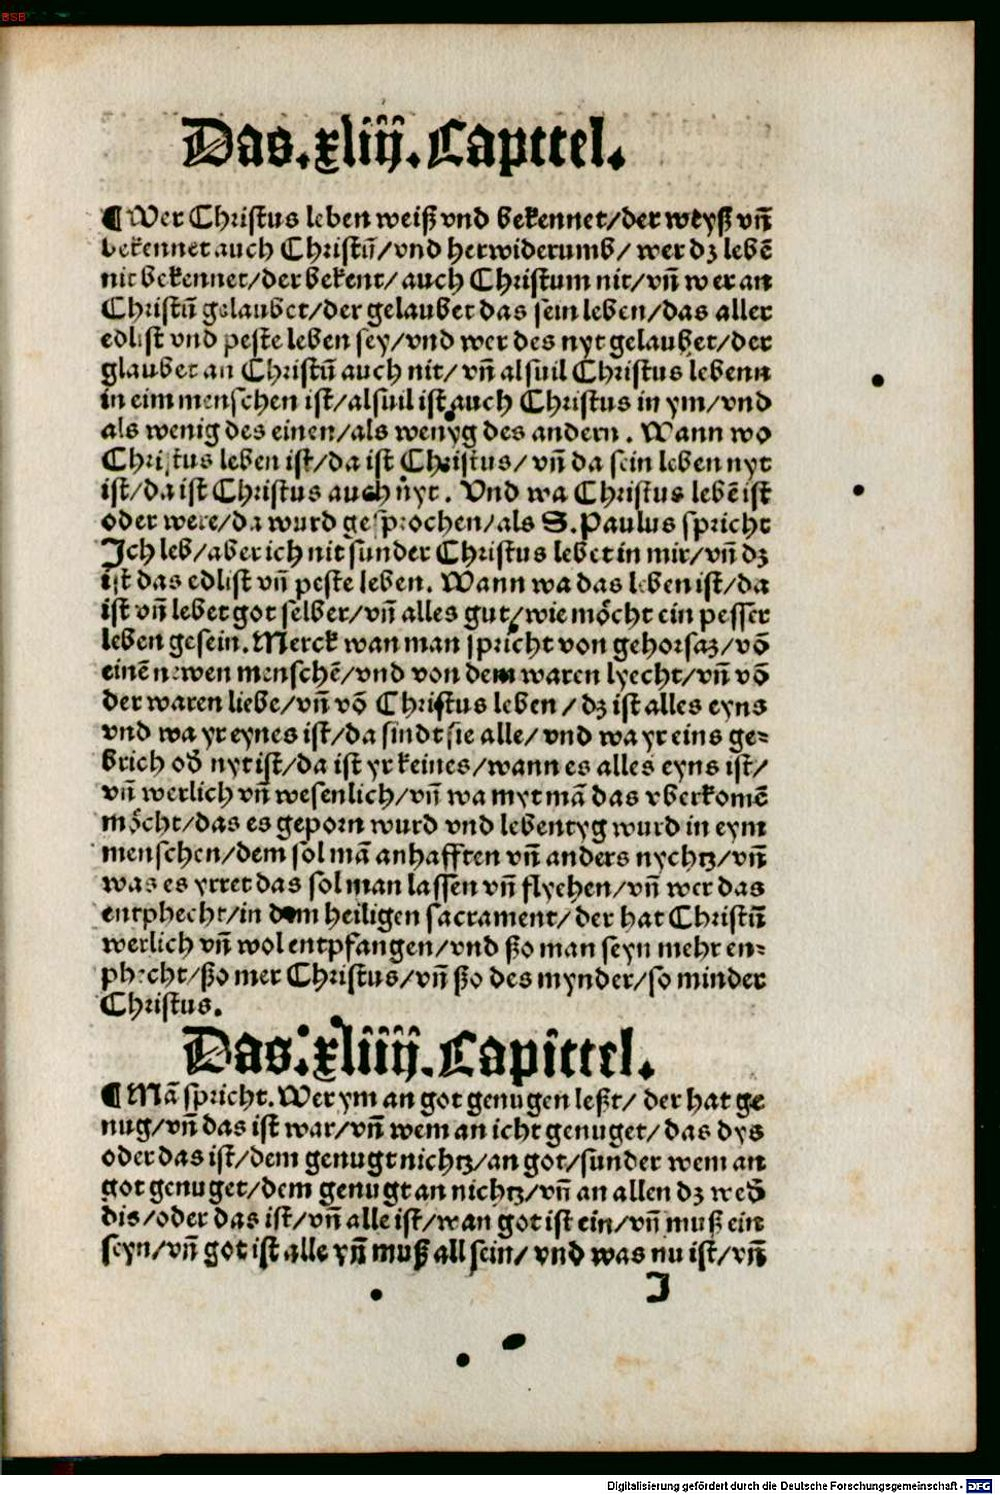 BSB
Das.xliij.Capittel.
¶ Wer Christus leben weiß vnd bekennet/der weyß vñ
bekennet auch Christū/vnd herwiderumb/ wer dz lebē
nit bekennet/der bekent/ auch Christum nit/vñ wer an
Christū gelaubet/der gelaubet das sein leben/das aller
edlist vnd peste leben sey/vnd wer des nyt gelaubet/der
glaubet an Christū auch nit/ vñ alsuil Christus lebenn
in eim menschen ist/alsuil ist auch Christus in ym/vnd
als wenig des einen/als wenyg des andern. Wann wo
Christus leben ist/da ist Christus/ vñ da sein leben nyt
ist/da ist Christus auch nyt. Vnd wa Christus lebē ist
oder were/da wurd gesprochen/als S.Paulus spricht
Ich leb/aber ich nit sunder Christus lebet in mir/vñ dz
ist das edlist vñ peste leben. Wann wa das leben ist/da
ist vñ lebet got selber/vñ alles gut/wie möcht ein pesser
leben gesein.Merck wan man spricht von gehorsaz/vō
einē newen menschē/vnd von dem waren lyecht/vñ vō
der waren liebe/vñ vō Christus leben / dz ist alles eyns
vnd wa yr eynes ist/da sindt sie alle/vnd wa yr eins ge=
brich od̄ nyt ist/da ist yr keines/wann es alles eyns ist/
vñ werlich vñ wesenlich/vñ wa myt mā das vberkomē
möcht/das es geporn wurd vnd lebentyg wurd in eym
menschen/dem sol mā anhafften vñ anders nychtz/vñ
was es yrret das sol man lassen vñ flyehen/vñ wer das
entphecht/in dem heiligen sacrament/der hat Christū
werlich vñ wol entpfangen/vnd ßo man seyn mehr en=
phecht/ßo mer Christus/vñ ßo des mynder/so minder
Christus.
Das.xliiij.Capittel.
¶ Mā spricht.Wer ym an got genugen leßt/ der hat ge
nug/vñ das ist war/vñ wem an icht genuget/das dys
oder das ist/dem genugt nichtz/an got/sunder wem an
got genuget/dem genugt an nichtz/vñ an allen dz wed̄
dis/oder das ist/vñ alle ist/wan got ist ein/vñ muß ein
seyn/vñ got ist alle vñ muß all sein/ vnd was nu ist/vñ
I
Digitalisierung gefördert durch die Deutsche Forschungsgemeinschaft - DFG